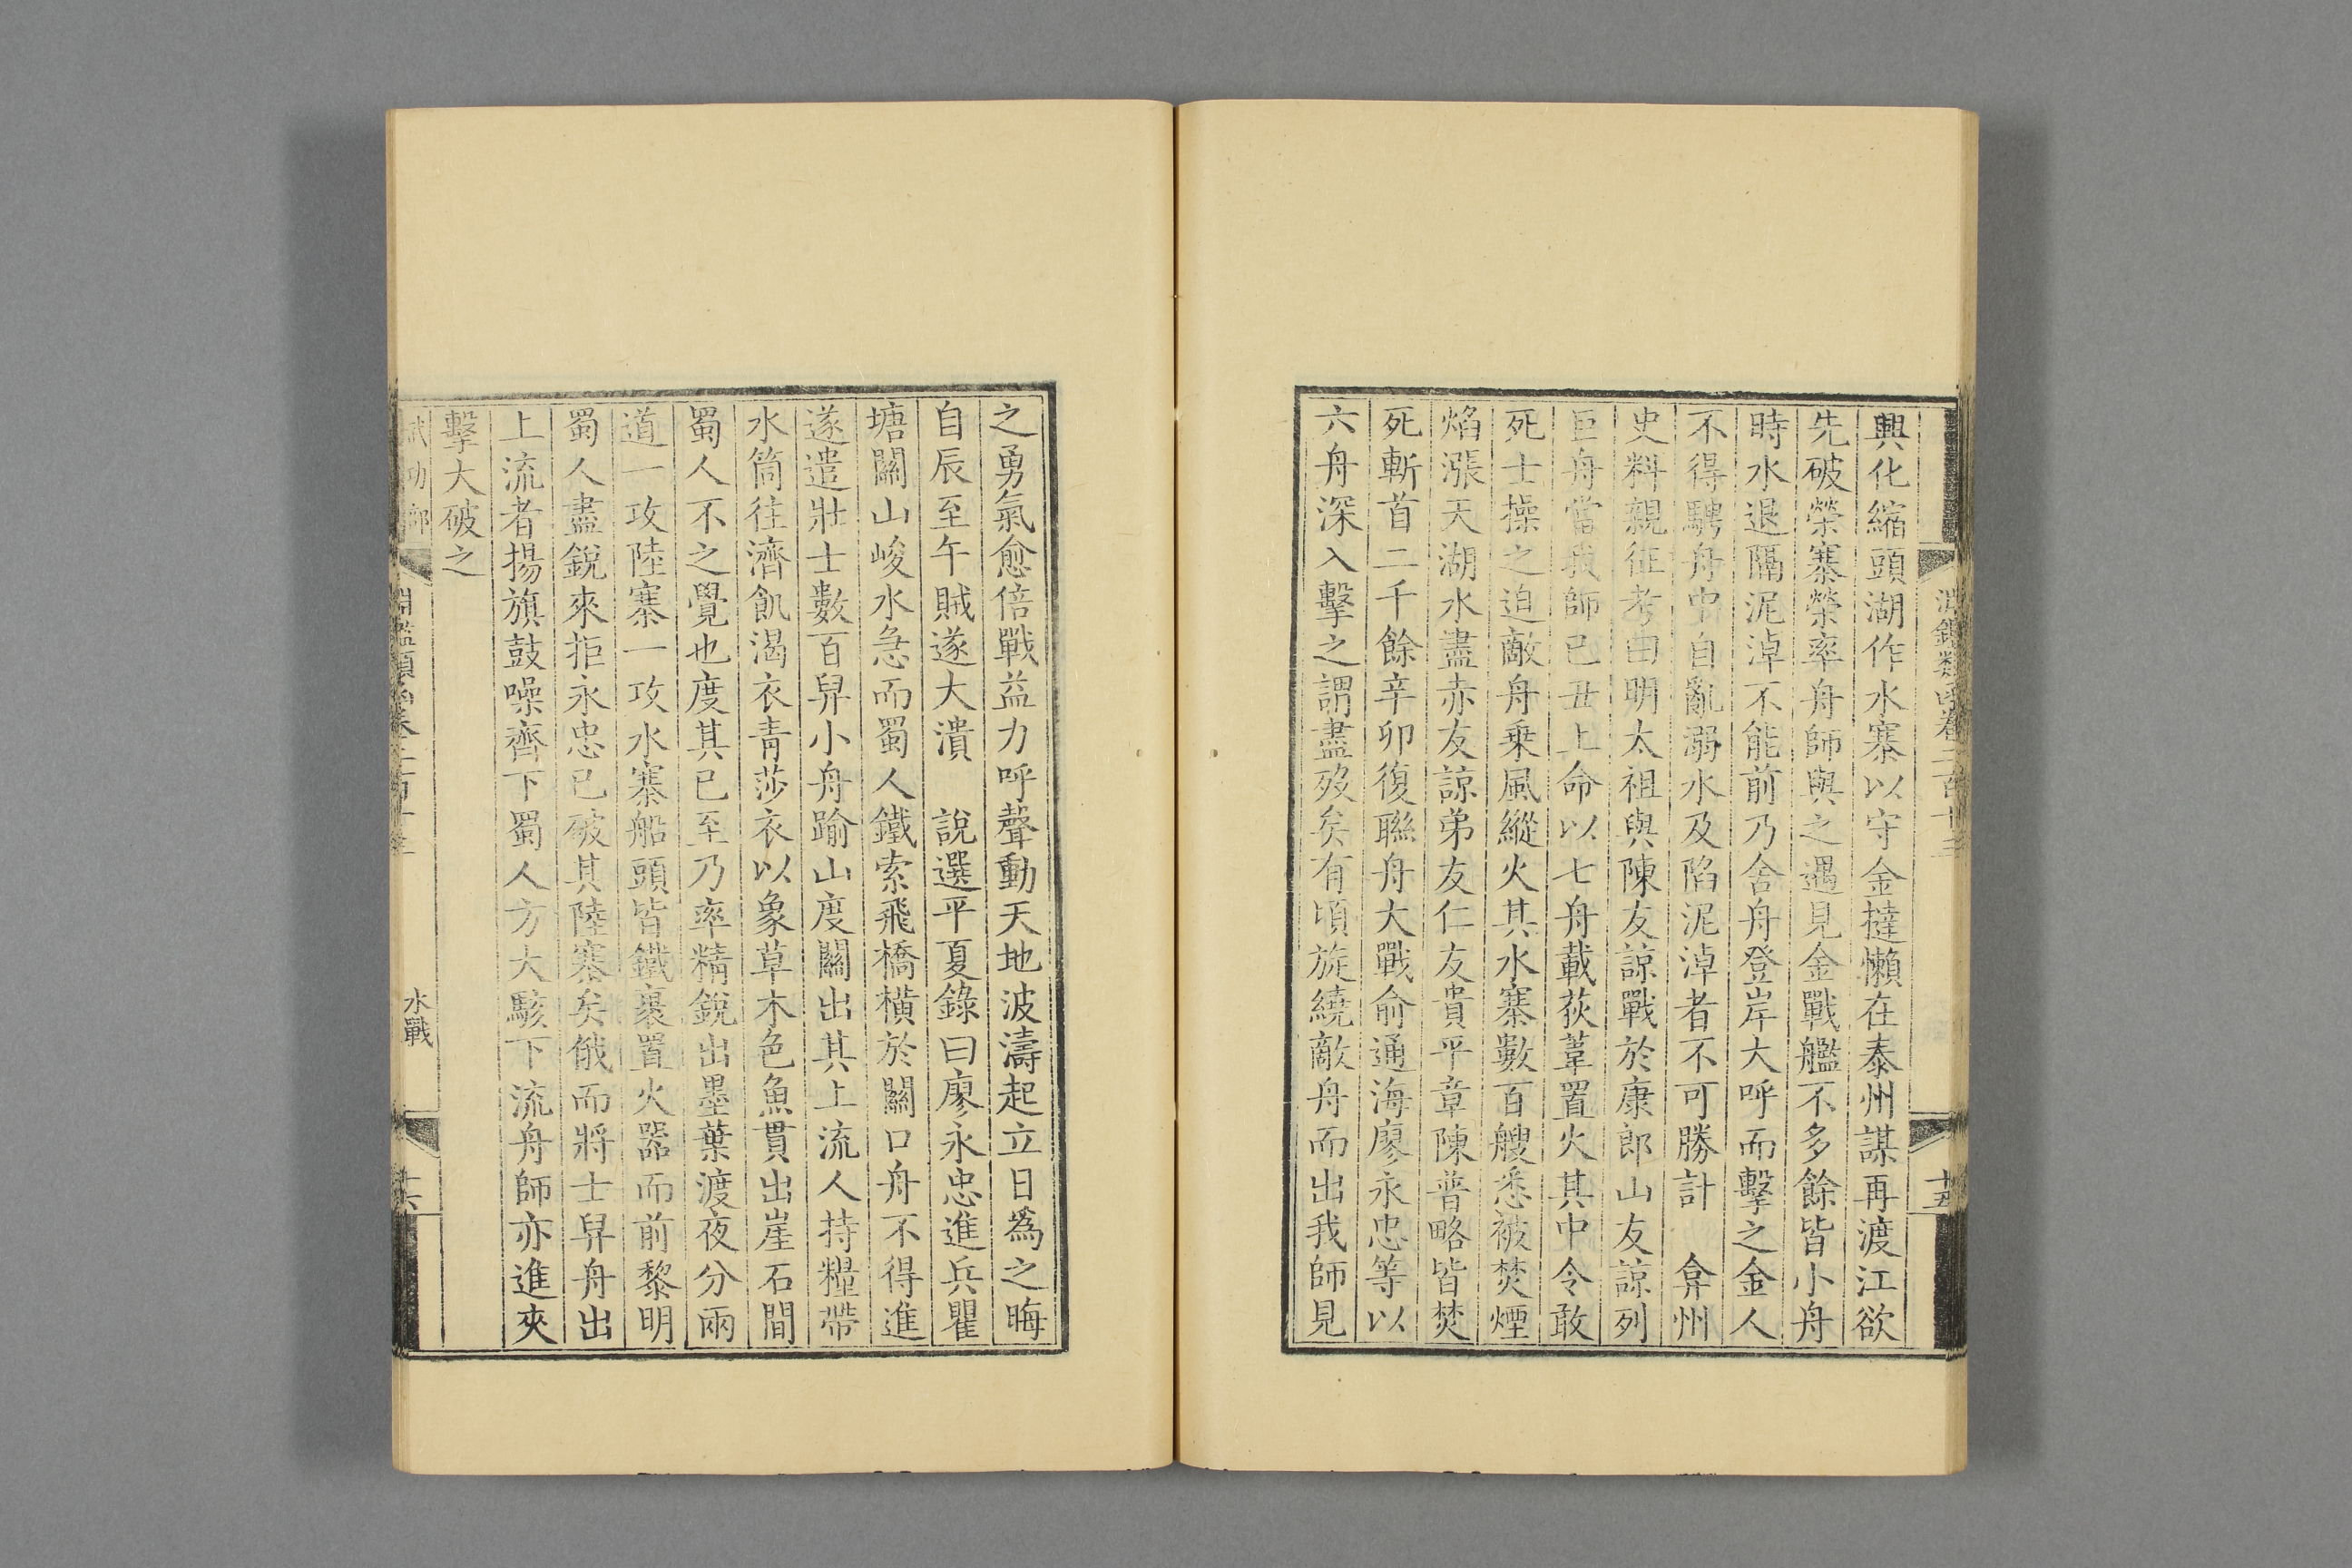 淵鑑類函卷二百十三
十五
興化縮頭湖作水寨以守金撻懶在泰州謀再渡江欲
先破榮寨榮率舟師與之遇見金戰艦不多餘皆小舟
時水退隔泥淖不能前乃舍舟登岸大呼而擊之金人
不得騁舟中自亂溺水及陷泥淖者不可勝計　弇州
史料親征考曰明太祖與陳友諒戰於康郎山友諒列
巨舟當我師己丑上命以七舟載荻葦置火其中令敢
死士操之迫敵舟乗風縱火其水寨數百艘悉被焚煙
焰漲天湖水盡赤友諒弟友仁友貴平章陳普略皆焚
死斬首二千餘辛卯復聯舟大戰俞通海廖永忠等以
六舟深入擊之謂盡歿矣有頃旋繞敵舟而出我師見
之勇氣愈倍戰益力呼聲動天地波濤起立日爲之晦
自辰至午賊遂大潰　說選平夏錄曰廖永忠進兵瞿
塘關山峻水急而蜀人鐵索飛橋橫於關口舟不得進
遂遣壯士數百舁小舟踰山度關出其上流人持糧帶
水筒往濟飢渴衣青莎衣以象草木色魚貫出崖石間
蜀人不之覺也度其已至乃率精銳出墨葉渡夜分兩
道一攻陸寨一攻水寨船頭皆鐵裹置火器而前黎明
蜀人盡銳來拒永忠已破其陸寨矣俄而將士舁舟出
上流者揚旗鼓噪齊下蜀人方大駭下流舟師亦進夾
擊大破之
武功部
淵鑑類函卷二百十三
水戰
十六